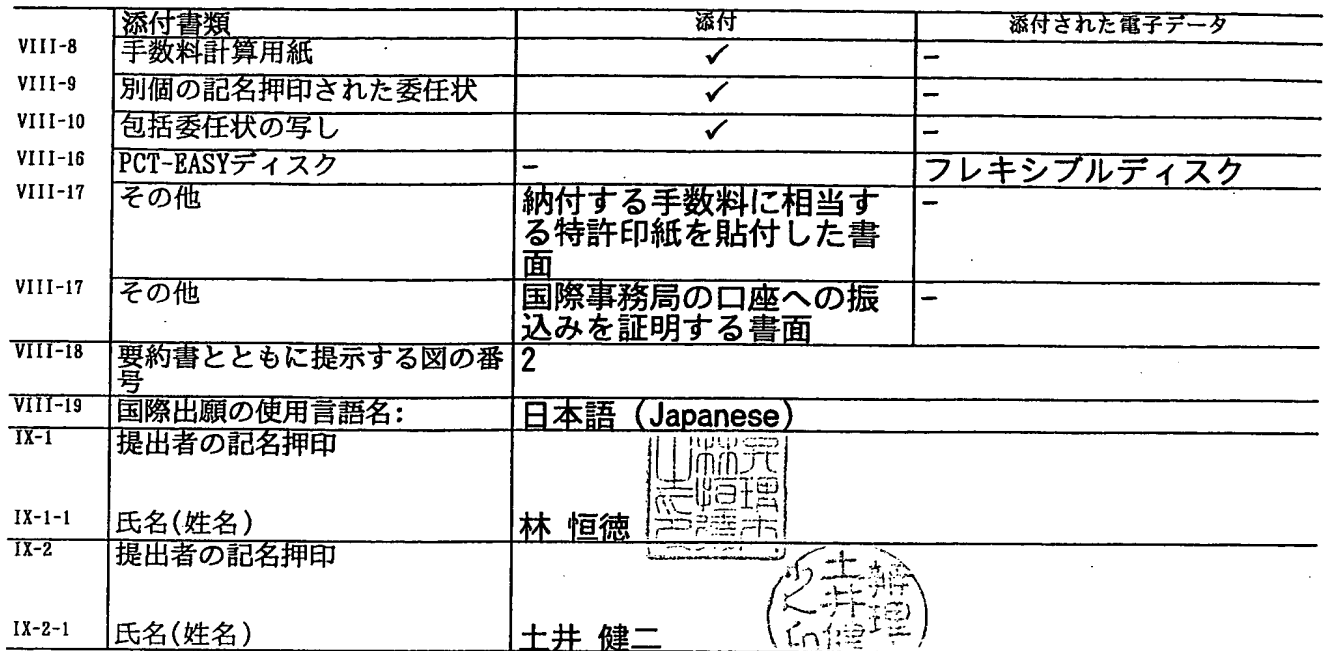 添付書類 添付 添付された電子データ
VIII-8 手数料計算用紙 ✓ -
VIII-9 別個の記名押印された委任状 ✓ -
VIII-10 包括委任状の写し ✓ -
VIII-16 PCT-EASYディスク - フレキシブルディスク
VIII-17 その他 納付する手数料に相当す -
る特許印紙を貼付した書
面
VIII-17 その他 国際事務局の口座への振 -
込みを証明する書面
VIII-18 要約書とともに提示する図の番 2
号
VIII-19 国際出願の使用言語名: 日本語 (Japanese)
IX-1 提出者の記名押印
IX-1-1 氏名(姓名) 林 恒徳
IX-2 提出者の記名押印
IX-2-1 氏名(姓名) 土井 健二